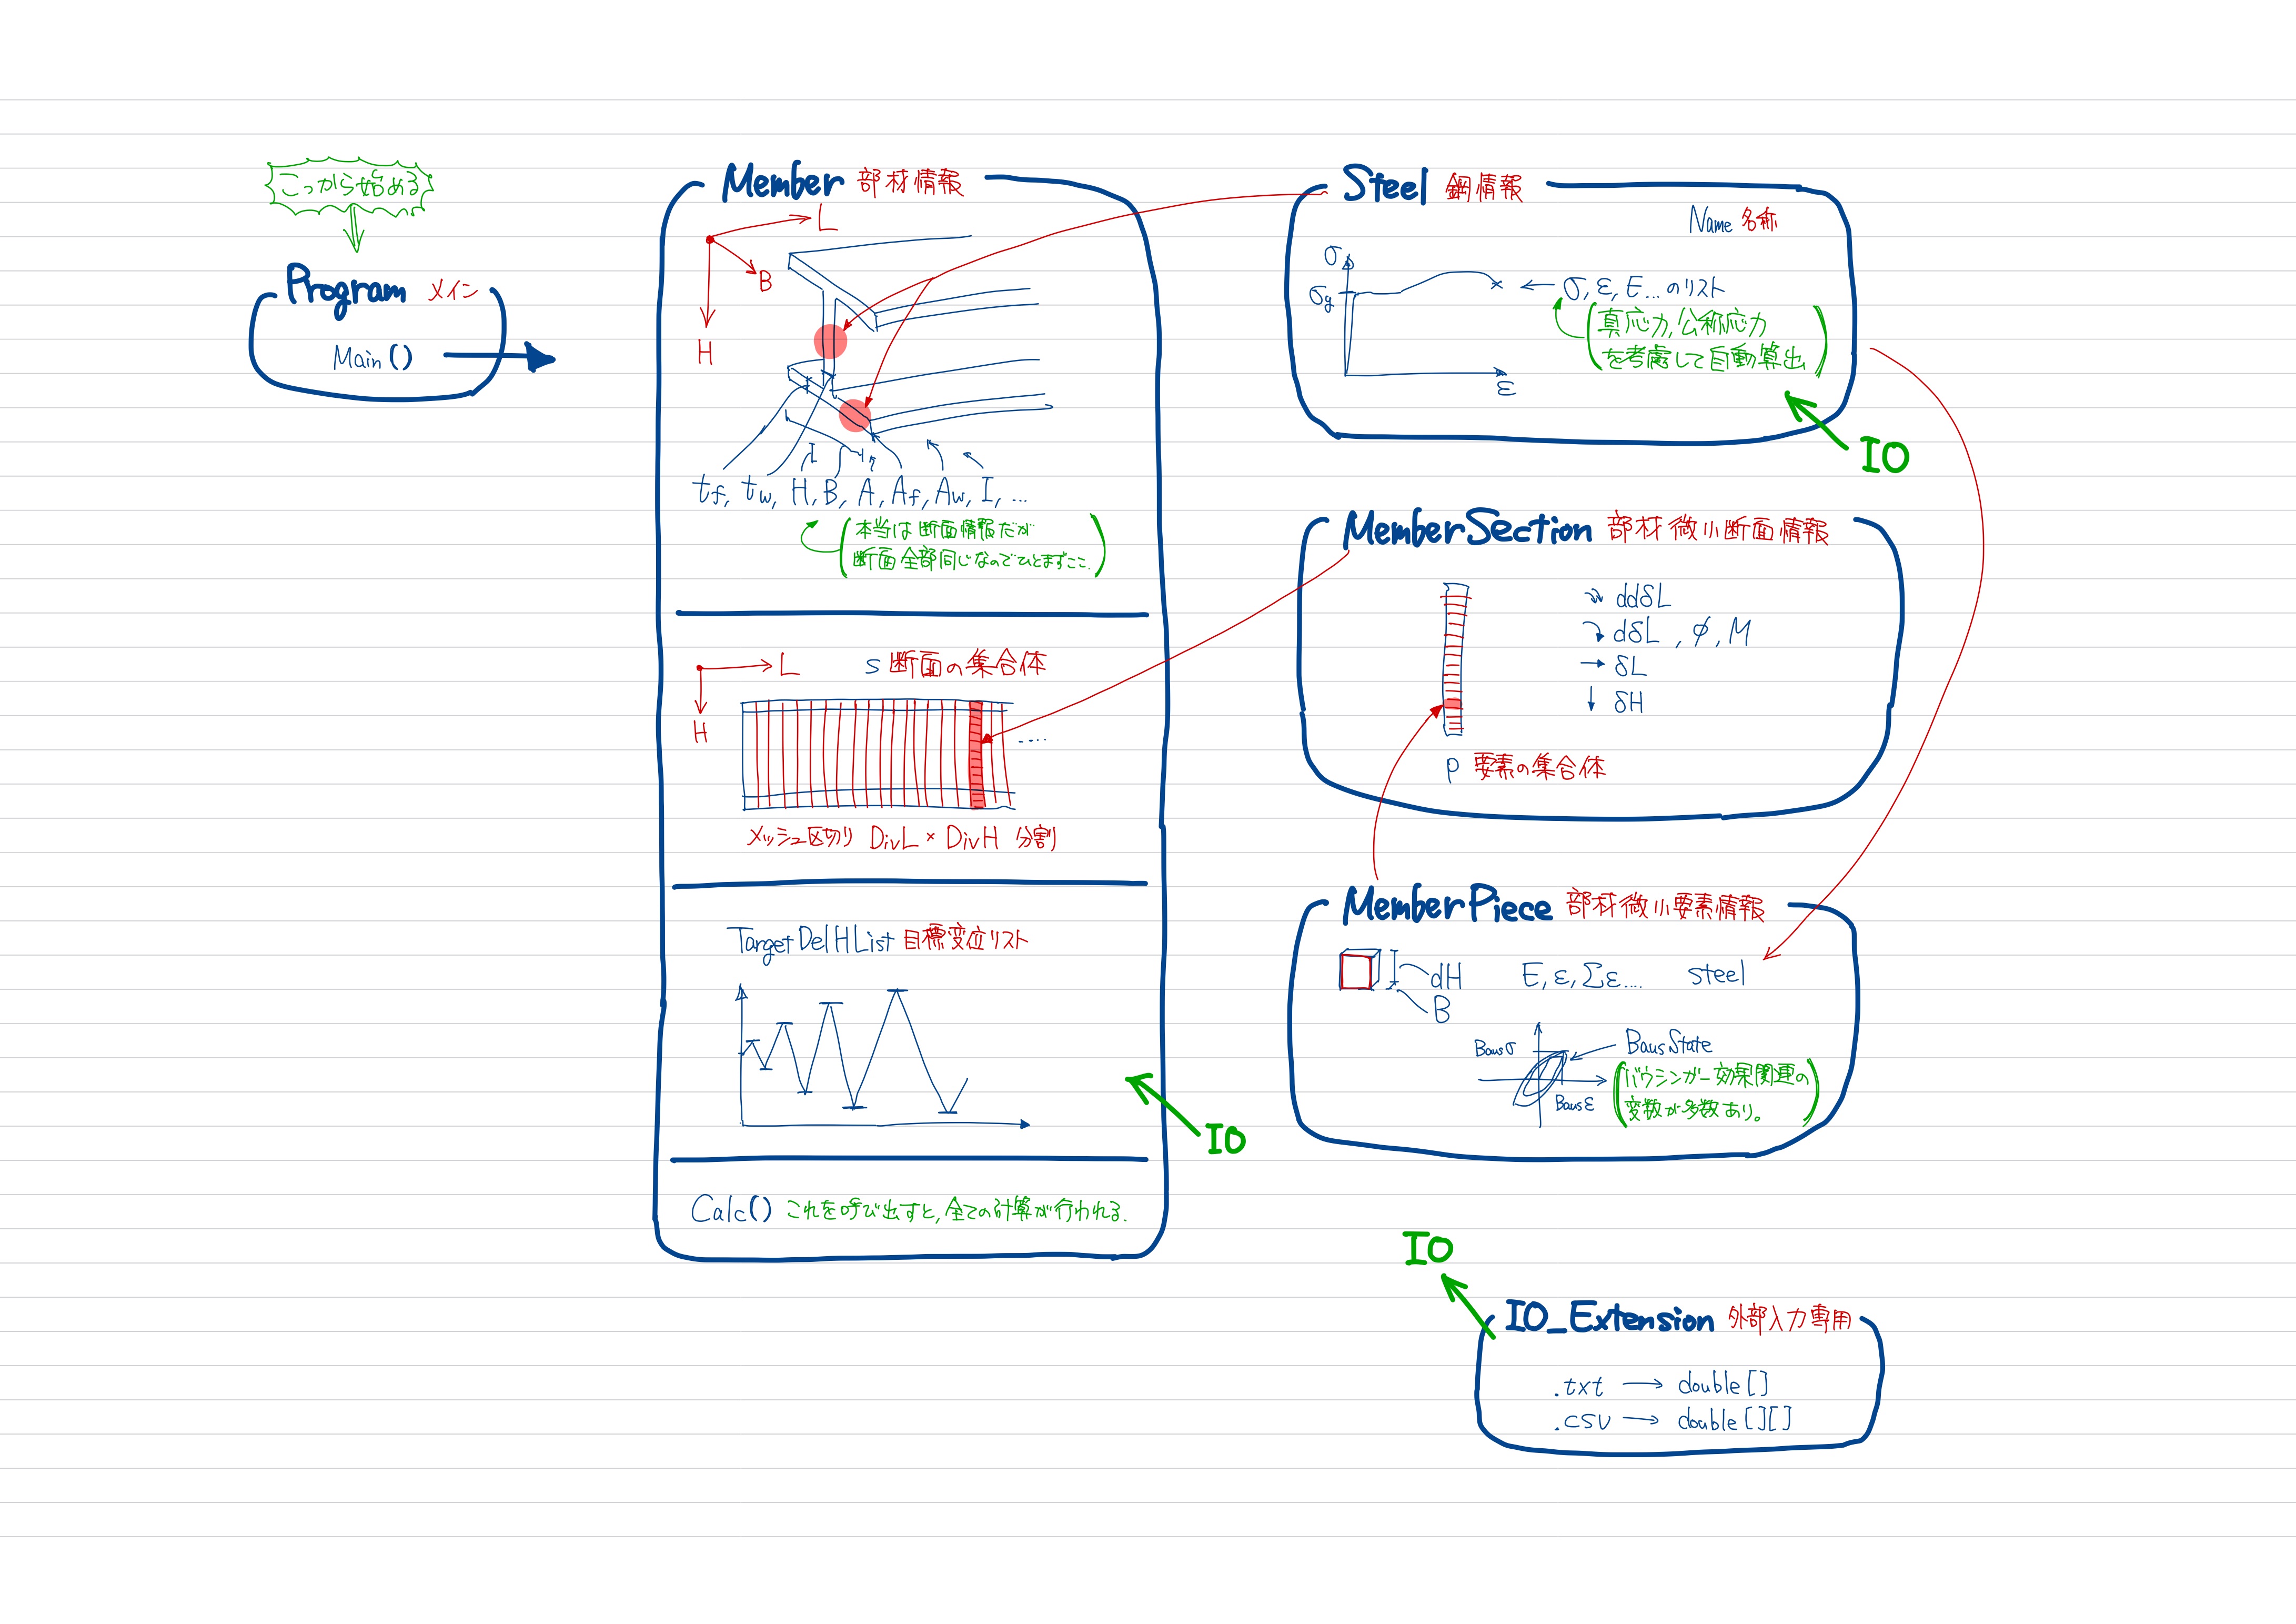 こっから始める
Program メイン
Main()
Member 部材情報
L
B
H
tf, tw, H, B, A, Af, Aw, I, ...
本当は断面情報だが
断面全部同じなのでひとまずここ.
L
s 断面の集合体
H
....
メッシュ区切り DivL × DivH 分割
TargetDelHList 目標変位リスト
IO
Calc() これを呼び出すと, 全ての計算が行われる.
Steel 鋼情報
Name 名称
σ
σy
ε
σ, ε, E... のリスト
真応力, 公称応力
を考慮して自動算出
IO
MemberSection 部材微小断面情報
ddδL
dδL, φ, M
δL
δH
p 要素の集合体
MemberPiece 部材微小要素情報
dH
B
E, ε, Σε.... steel
Bausσ
BausState
Bausε
バウシンガー効果関連の
変数が多数あり。
IO
IO_Extension 外部入力専用
.txt → double[]
.csv → double[][]